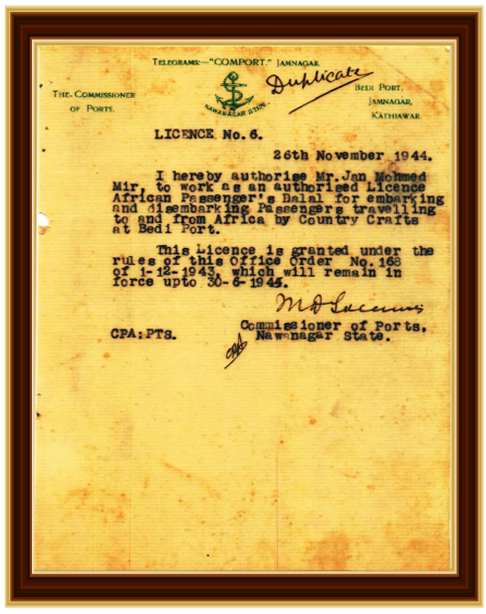 TELEGRAMS:—"COMPORT." JAMNAGAR.
Duplicate
THE COMMISSIONER
OF PORTS.
NAWANAGAR STATE.
BEDI PORT,
JAMNAGAR,
KATHIAWAR
LICENCE No.6.
26th November 1944.
I hereby authorise Mr.Jan Mohmed
Mir, to work as an authorised Licence
African Passenger's Dalal for embarking
and disembarking Passengers travelling
to and from Africa by Country Crafts
at Bedi Port.
This Licence is granted under the
rules of this Office Order No.168
of 1-12-1943, which will remain in
force upto 30-6-1945.
Commissioner of Ports,
CPA:PTS.
Nawanagar State.